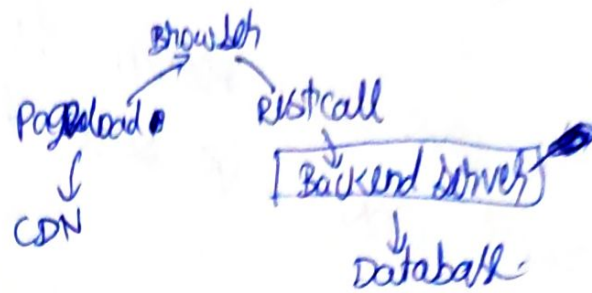 Browser
Pageload
Restcall
Backend Server
CDN
Database